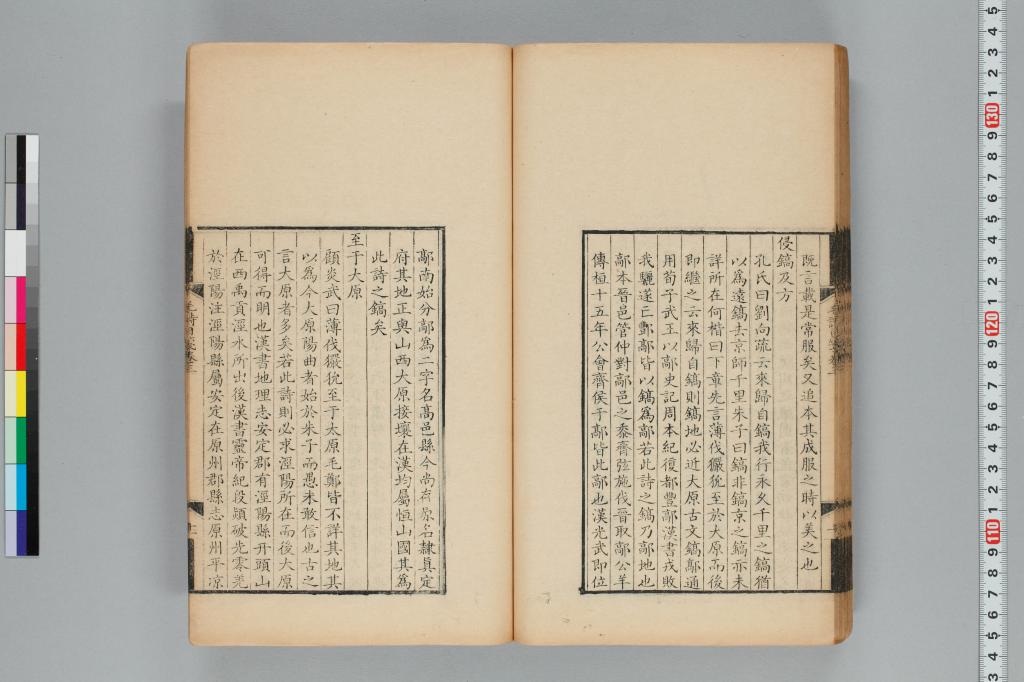 既言載是常服矣又追本其成服之時以美之也
侵鎬及方
孔氏曰劉向疏云來歸自鎬我行永久千里之鎬猶
以爲遠鎬去京師千里朱子曰鎬非鎬京之鎬亦未
詳所在何楷曰下章先言薄伐玁狁至於大原而後
即繼之云來歸自鎬則鎬地必近大原古文鎬鄗通
用荀子武王以鄗史記周本紀復都豐鄗漢書戎敗
我驪遂亡酆鄗皆以鎬爲鄗若此詩之鎬乃鄗地也
鄗本晉邑管仲對鄗邑之黍齊弦施伐晉取鄗公羊
傳桓十五年公會齊侯于鄗皆此鄗也漢光武即位
鄗南始分鄗爲二字名高邑縣今尚存原名隸真定
府其地正與山西大原接壤在漢均屬恒山國其爲
此詩之鎬矣
至于大原
顧炎武曰薄伐玁狁至于太原毛鄭皆不詳其地其
以爲今大原陽曲者始於朱子而愚未敢信也古之
言大原者多矣若此詩則必求涇陽所在而後大原
可得而明也漢書地理志安定郡有涇陽縣幵頭山
在西禹貢涇水所出後漢書靈帝紀段熲破先零羌
於涇陽注涇陽縣屬安定在原州郡縣志原州平凉